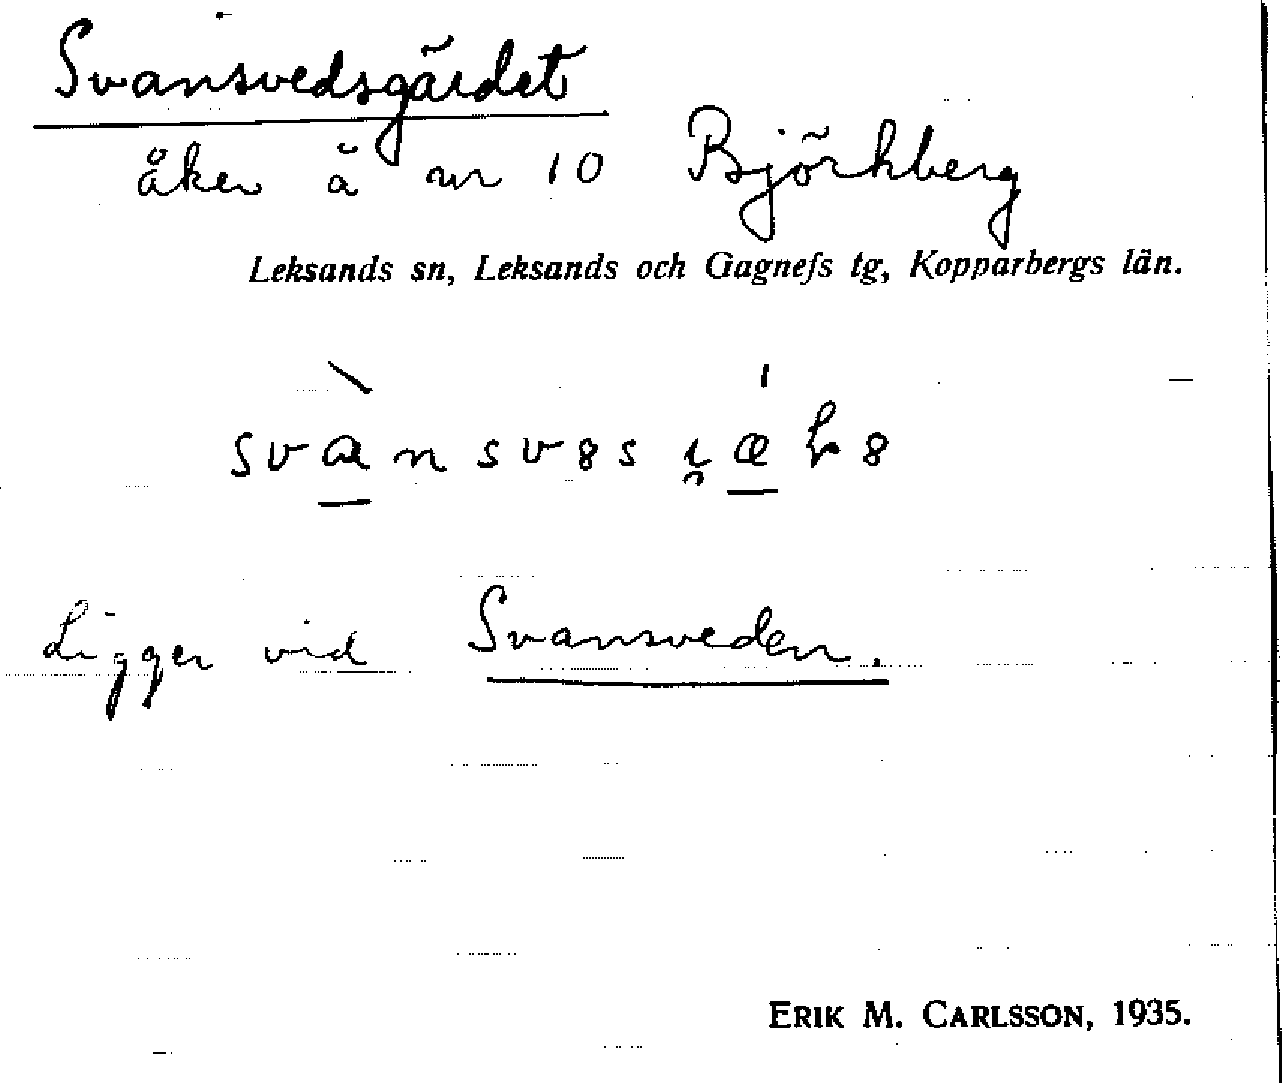 Svansvedsgärdet
åker å nr 10 Björkberg
Leksands sn, Leksands och Gagnefs tg, Kopparbergs län.
Ligger vid Svansveden.
ERIK M. CARLSSON, 1935.